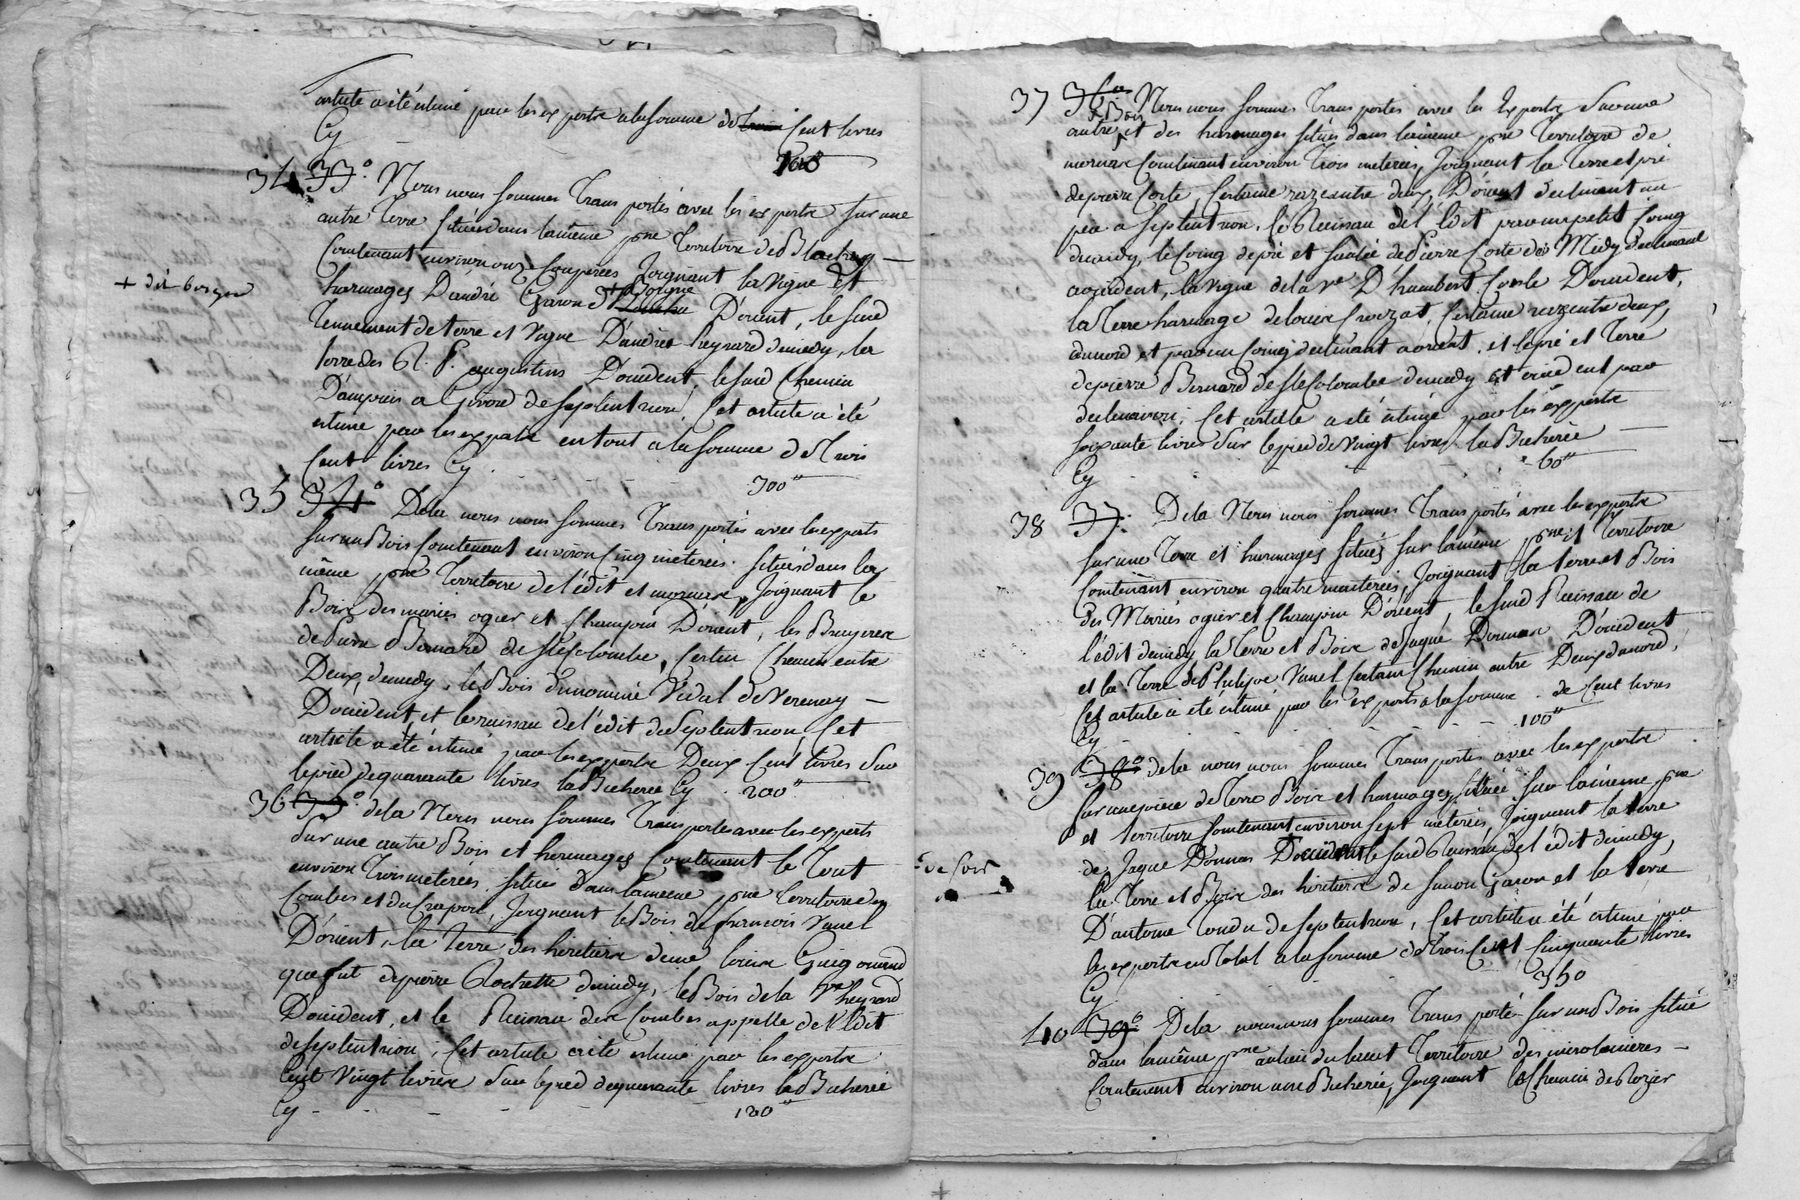 article a été estimé par les experts a la somme de Cent livres
Cy 100
34 33.° Nous nous sommes Transportés avec les experts sur une
autre Terre située dans la même pne Territoire de
Contenant environ onze Couperées Joignant la Vigne et
harmages D'andré Garon D'orient, le sud
+ dit borgne
Tennement de terre et Vigne D'andré heyrard demidy, la
terre des R. P. augustins D'occident, le sud Chemin
D'ampuis a Givord de septentrion, Cet article a été
estimé par les experts en tout a la somme de Trois
Cent livres Cy 300"
35 34° Dela nous nous sommes Transportés avec les experts
sur un Bois Contenant environ Cinq meterées. située dans la
même pne Territoire de l'édit et mornare, Joignant le
Bois des mariés ogier et Champin D'orient, les Bruyeres
de Pierre Bernard de Ste Colombe, Certain Chemin entre
Deux, demidy, le Bois du nommé Vidal de Verenay —
Doccident, et le ruisseau de l'édit de Septentrion, Cet
article a été estimé par les experts Deux Cent livres sur
le pied de quarante livres la Bicherée Cy 200"
36 35.° dela Nous nous sommes Transportes avec les experts
sur une autre Bois et hermages Contenant le Tout
environ Trois meterées, située dans la même pne Territoire des
Combes et du Crapon, Joignant le Bois de françois Vanel
D'orient, la Terre des héritiers de
que fut de pierre Rochette demidy, le Bois de la ve heyrard
Doccident, et le Ruisseau des Combes appellé de l'édit
de septentrion; Cet article a été estimé par les experts
Cent Vingt livres sur le pied de quarante livres la Bicherée
Cy - - - - 120"
37 36° Nous nous sommes Transportés avec les Experts sur une
autre Bois et des harmages situés dans la même pne Territoire de
mornare Contenant environ Trois meterées, Joignant la Terre et pré
de pierre Coste, Certaine raze entre deux, D'orient declinant un
peu a septentrion, le Ruisseau de l'édit par un petit Coing
demidy, le Coing de pré et de Pierre Coste de Midy declinant
a occident, la vigne de la ve D'humbert Doccident,
la Terre harmage de Crozat, Certaine raze entre deux,
du nord et par un Coing declinant a orient, et le pré et Terre
de pierre Bernard de Ste Colombe demidy et occident par
declinaison; Cet article a été estimé par les experts
soixante livres sur le pied de Vingt livres la Bicherée —
Cy 60"
38 37. Dela Nous nous sommes Transportés avec les experts
sur une Terre et harmages situés sur la même pne et Territoire
Contenant environ quatre meterées, Joignant la terre et Bois
des Mariés ogier et Champin D'orient, le sud Ruisseau de
l'édit demidy la Terre et Bois de Jaque Donnas D'occident
et la Terre de Philipe Vanel Certain Chemin entre Deux du nord,
Cet article a été estimé par les experts a la somme de Cent livres
Cy 100"
39 38° dela nous nous sommes Transportés avec les experts
sur une piece de Terre Bois et harmages, située sur la même pne
et territoire Contenant environ sept meterées, Joignant la terre
de Jaque Donnas D'occident le sud Ruisseau de l'édit demidy,
+ de soir
la Terre et Bois des héritiers de Garon et la terre
D'antoine de septentrion, Cet article a été estimé par
les experts en Total a la somme de Trois Cent Cinquante livres
Cy 350
40 39° Dela nous nous sommes Transporté sur un Bois situé
dans la même pne Territoire des —
Contenant environ une Bicherée, Joignant le Chemin de Rozier